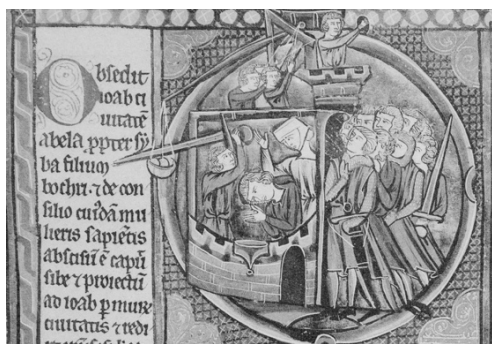 Obsedit
ioab ci
uitatē
abela ꝓpter sy
ba filium
bochri. ⁊ de con
silio cuiꝰdā mu
lieris sapiētis
abscisū ē caput
sibe ⁊ proiectū
ad ioab ꝑ murū
ciuitatis ⁊ redi